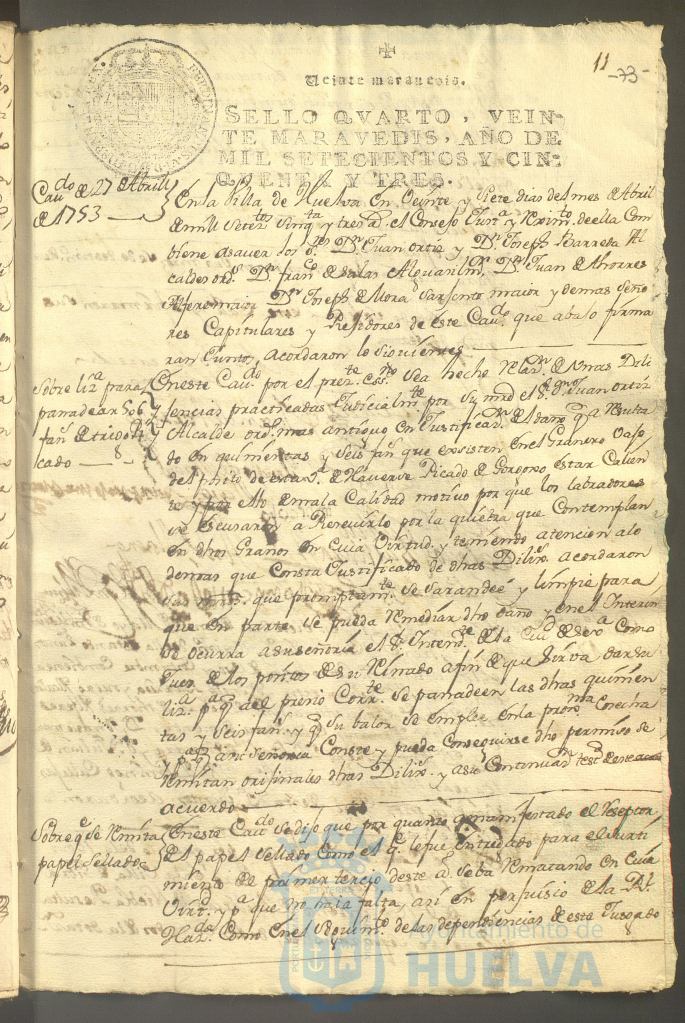 11
-73-
Veinte maravedis.
SELLO QVARTO, VEIN-
TE MARAVEDIS, AÑO DE
MIL SETECIENTOS Y CIN-
QVENTA Y TRES.
Cavdo de 27 de Abrill
de 1753
En la Villa de Huelva en Veinte y Siete dias del mes de Abril
de mill Setetos Sinqta y tres as. el Consejo Justa y Reximto de ella Com
biene a sauer los Ses Dn Juan ortiz y Dn Joseph Barreda Al
caldes ords. Dn Franco de Salas Alguasil mr. Dn Juan de
Alferez maior Dn Joseph de Mora Sarjento maior y demas Seño
res Capitulares y Rejidores de este Cavdo que abajo firma
ran Junto, acordaron lo siguiente
Sobre liza para
panadear 506
fans de trigo
cado
En este Cavdo por el preste essno Sea hecho Relasn de unas Dili
jencias practicadas Judicialmte por Su mrd el Sr Dn Juan ortiz
Alcalde ordo mas antiguo en Justificasn del daño q a Resulta
do en quinientas y Seis fans que existen en el Granero
del posito de esta Va de Haverse Picado de Gorgojo estar Calien
te y por esto de mala Calidad motivo por que los labradores
se escusaron a Reseuirlo por la quiebra que Contemplan
en dhos Granos en Cuia Virtud y teniendo atencion a lo
demas que Consta Justificado de dhas Dilixs. acordaron
Sus mrds. que promptamte se Sarandeé y limpie para
que en parte se pueda Remediar dho daño y en el Interin
se ocurra a su señoria el Sr Intendte de la Ciud de Seva Como
Juez de los positos de su Reinado a fin de que Sirva dar su
liza pa q del presio Corrte Se panadeen las dhas quinien
tas y Seis fans y q su valor se emplee en la proxma Cosecha
y pa q a su Señoria Conste y pueda Conseguirse dho permiso se
Remitan orijinales dhas Dilixs. y a su Continuasn testo de este
acuerdo
Sobre q se Remita
papel Sellado
En este Cavdo Se dijo que por quanto a manifestado el Reseptor
del papel Sellado Como el q le fue entregado para el surti
miento del primer tercio deste ao Se ba Rematando en Cuia
Virtd. y pa que no haia falta, asi en perjuisio de la Rl
Hazda Como en el Seguimto de las dependencias de este Jusgado
Ayuntamiento de
HUELVA